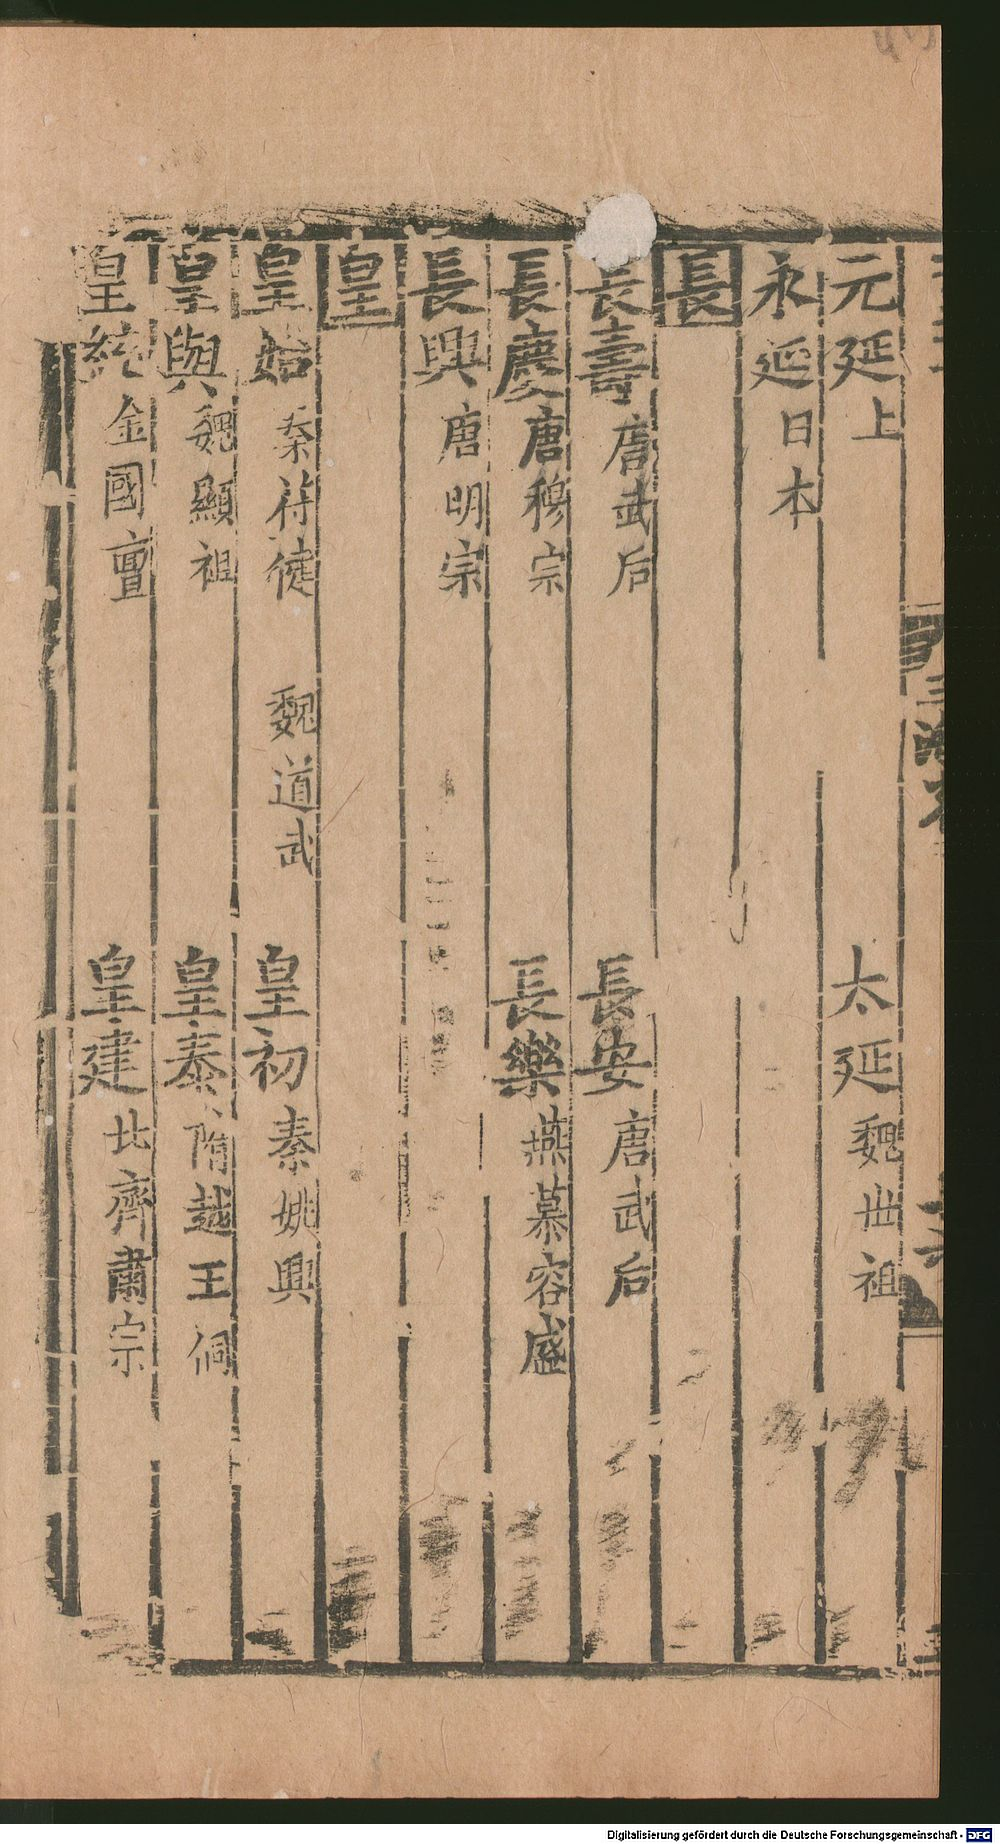 元延上 太延魏世祖
永延日本
長
長壽唐武后 長安唐武后
長慶唐穆宗 長樂燕慕容盛
長興唐明宗
皇
皇始秦苻健 魏道武 皇初秦姚興
皇興魏顯祖 皇泰隋越王侗
皇統金國亶 皇建北齊肅宗
Digitalisierung gefördert durch die Deutsche Forschungsgemeinschaft - DFG